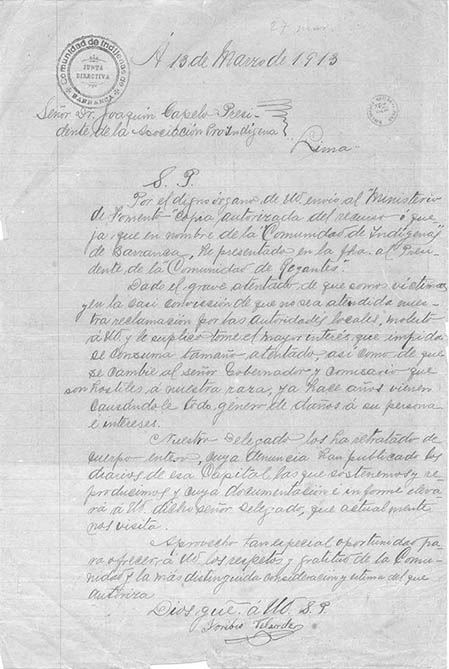 27 mar.
Á 13 de Marzo de 1913
Comunidad de Indígenas de
JUNTA
DIRECTIVA
BARRANCA
Señor Dr. Joaquin Capelo Presi-
dente de la Asociación Pro Indígena
Lima
S. P.
Por el digno órgano de Ud envío al Ministerio
de Fomento copia autorizada del recurso ó que
ja, que en nombre de la "Comunidad de Indígenas"
de Barranca, he presentado en la fha. al Presi
dente de la Comunidad de Regantes.
Dado el grave atentado de que somos víctimas
y en la casi convicción de que no sea atendida nues
tra reclamación por las autoridades locales, molesto
á Ud, y le suplico tome el mayor interés que impida
se consuma tamaño atentado, así como de que
se cambie al señor Gobernador y Comisario que
son hostiles á nuestra raza, ya hace años vienen
causándole todo género de daños á su persona
é intereses.
Nuestro Delegado los ha retratado de
cuerpo entero, cuya denuncia han publicado los
diarios de esa Capital, las que sostenemos y re
producimos y cuya documentación é informe eleva
rá á Ud dicho señor Delegado, que actualmente
nos visita.
Aprovecho tan especial oportunidad pa
ra ofrecer, á Ud los respetos y gratitud de la Comu
nidad y la más distinguida consideración y estima del que
autoriza
Dios gue. á Ud. S. P.
Toribio Velarde